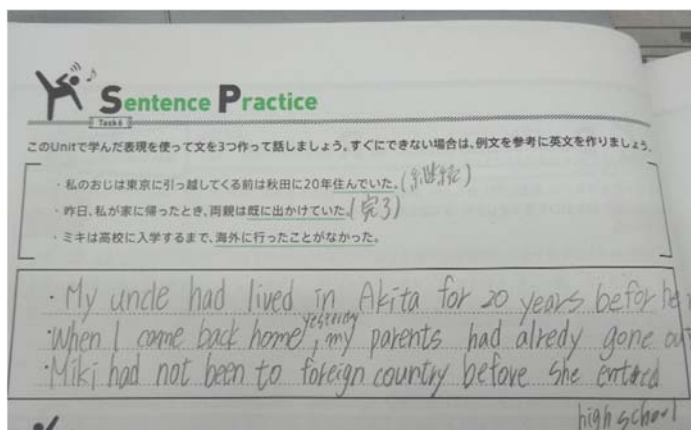 Sentence Practice
Task6
このUnitで学んだ表現を使って文を3つ作って話しましょう。すぐにできない場合は、例文を参考に英文を作りましょう。
・私のおじは東京に引っ越してくる前は秋田に20年住んでいた。(継続)
・昨日、私が家に帰ったとき、両親は既に出かけていた。(完了)
・ミキは高校に入学するまで、海外に行ったことがなかった。
・My uncle had lived in Akita for 20 years befor he
yesterday
・When I came back home, my parents had alredy gone out
・Miki had not been to foreign country before she entered
high school